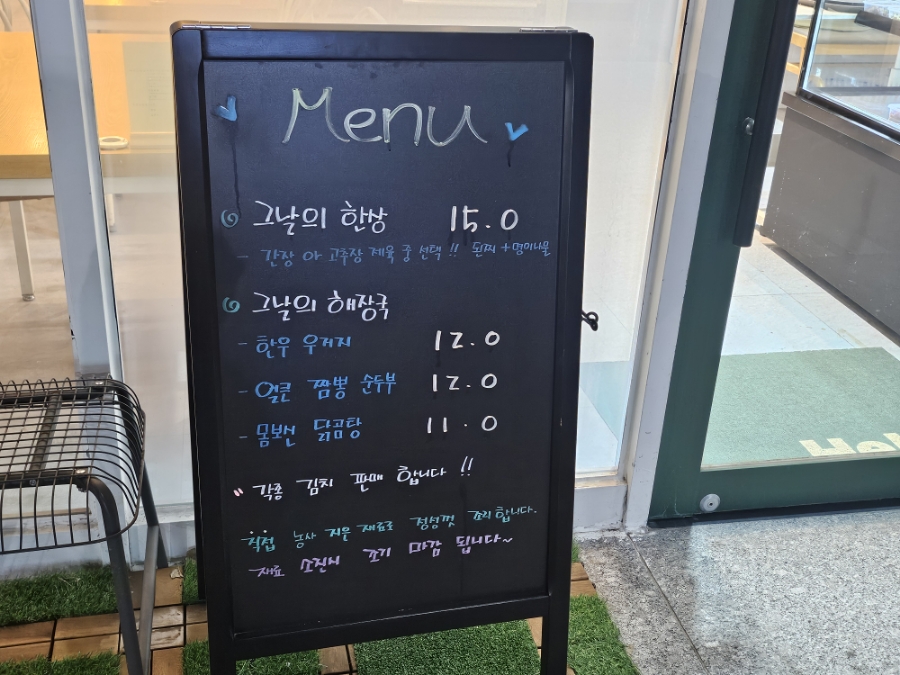 Menu
그날의 한상 15.0
- 간장 or 고추장 제육 중 선택!! 된찌+명이나물
그날의 해장국
- 한우 우거지 12.0
- 얼큰 짬뽕 순두부 12.0
- 몸보신 닭곰탕 11.0
" 각종 김치 판매 합니다!!
직접 농사 지은 재료로 정성껏 조리합니다.
재료 소진시 조기 마감 됩니다~
Hel